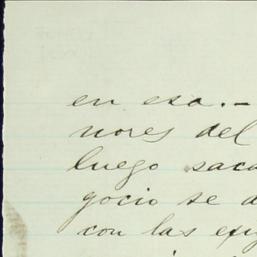 en esa.-
nores del
luego saca
gocio se a
con las exig